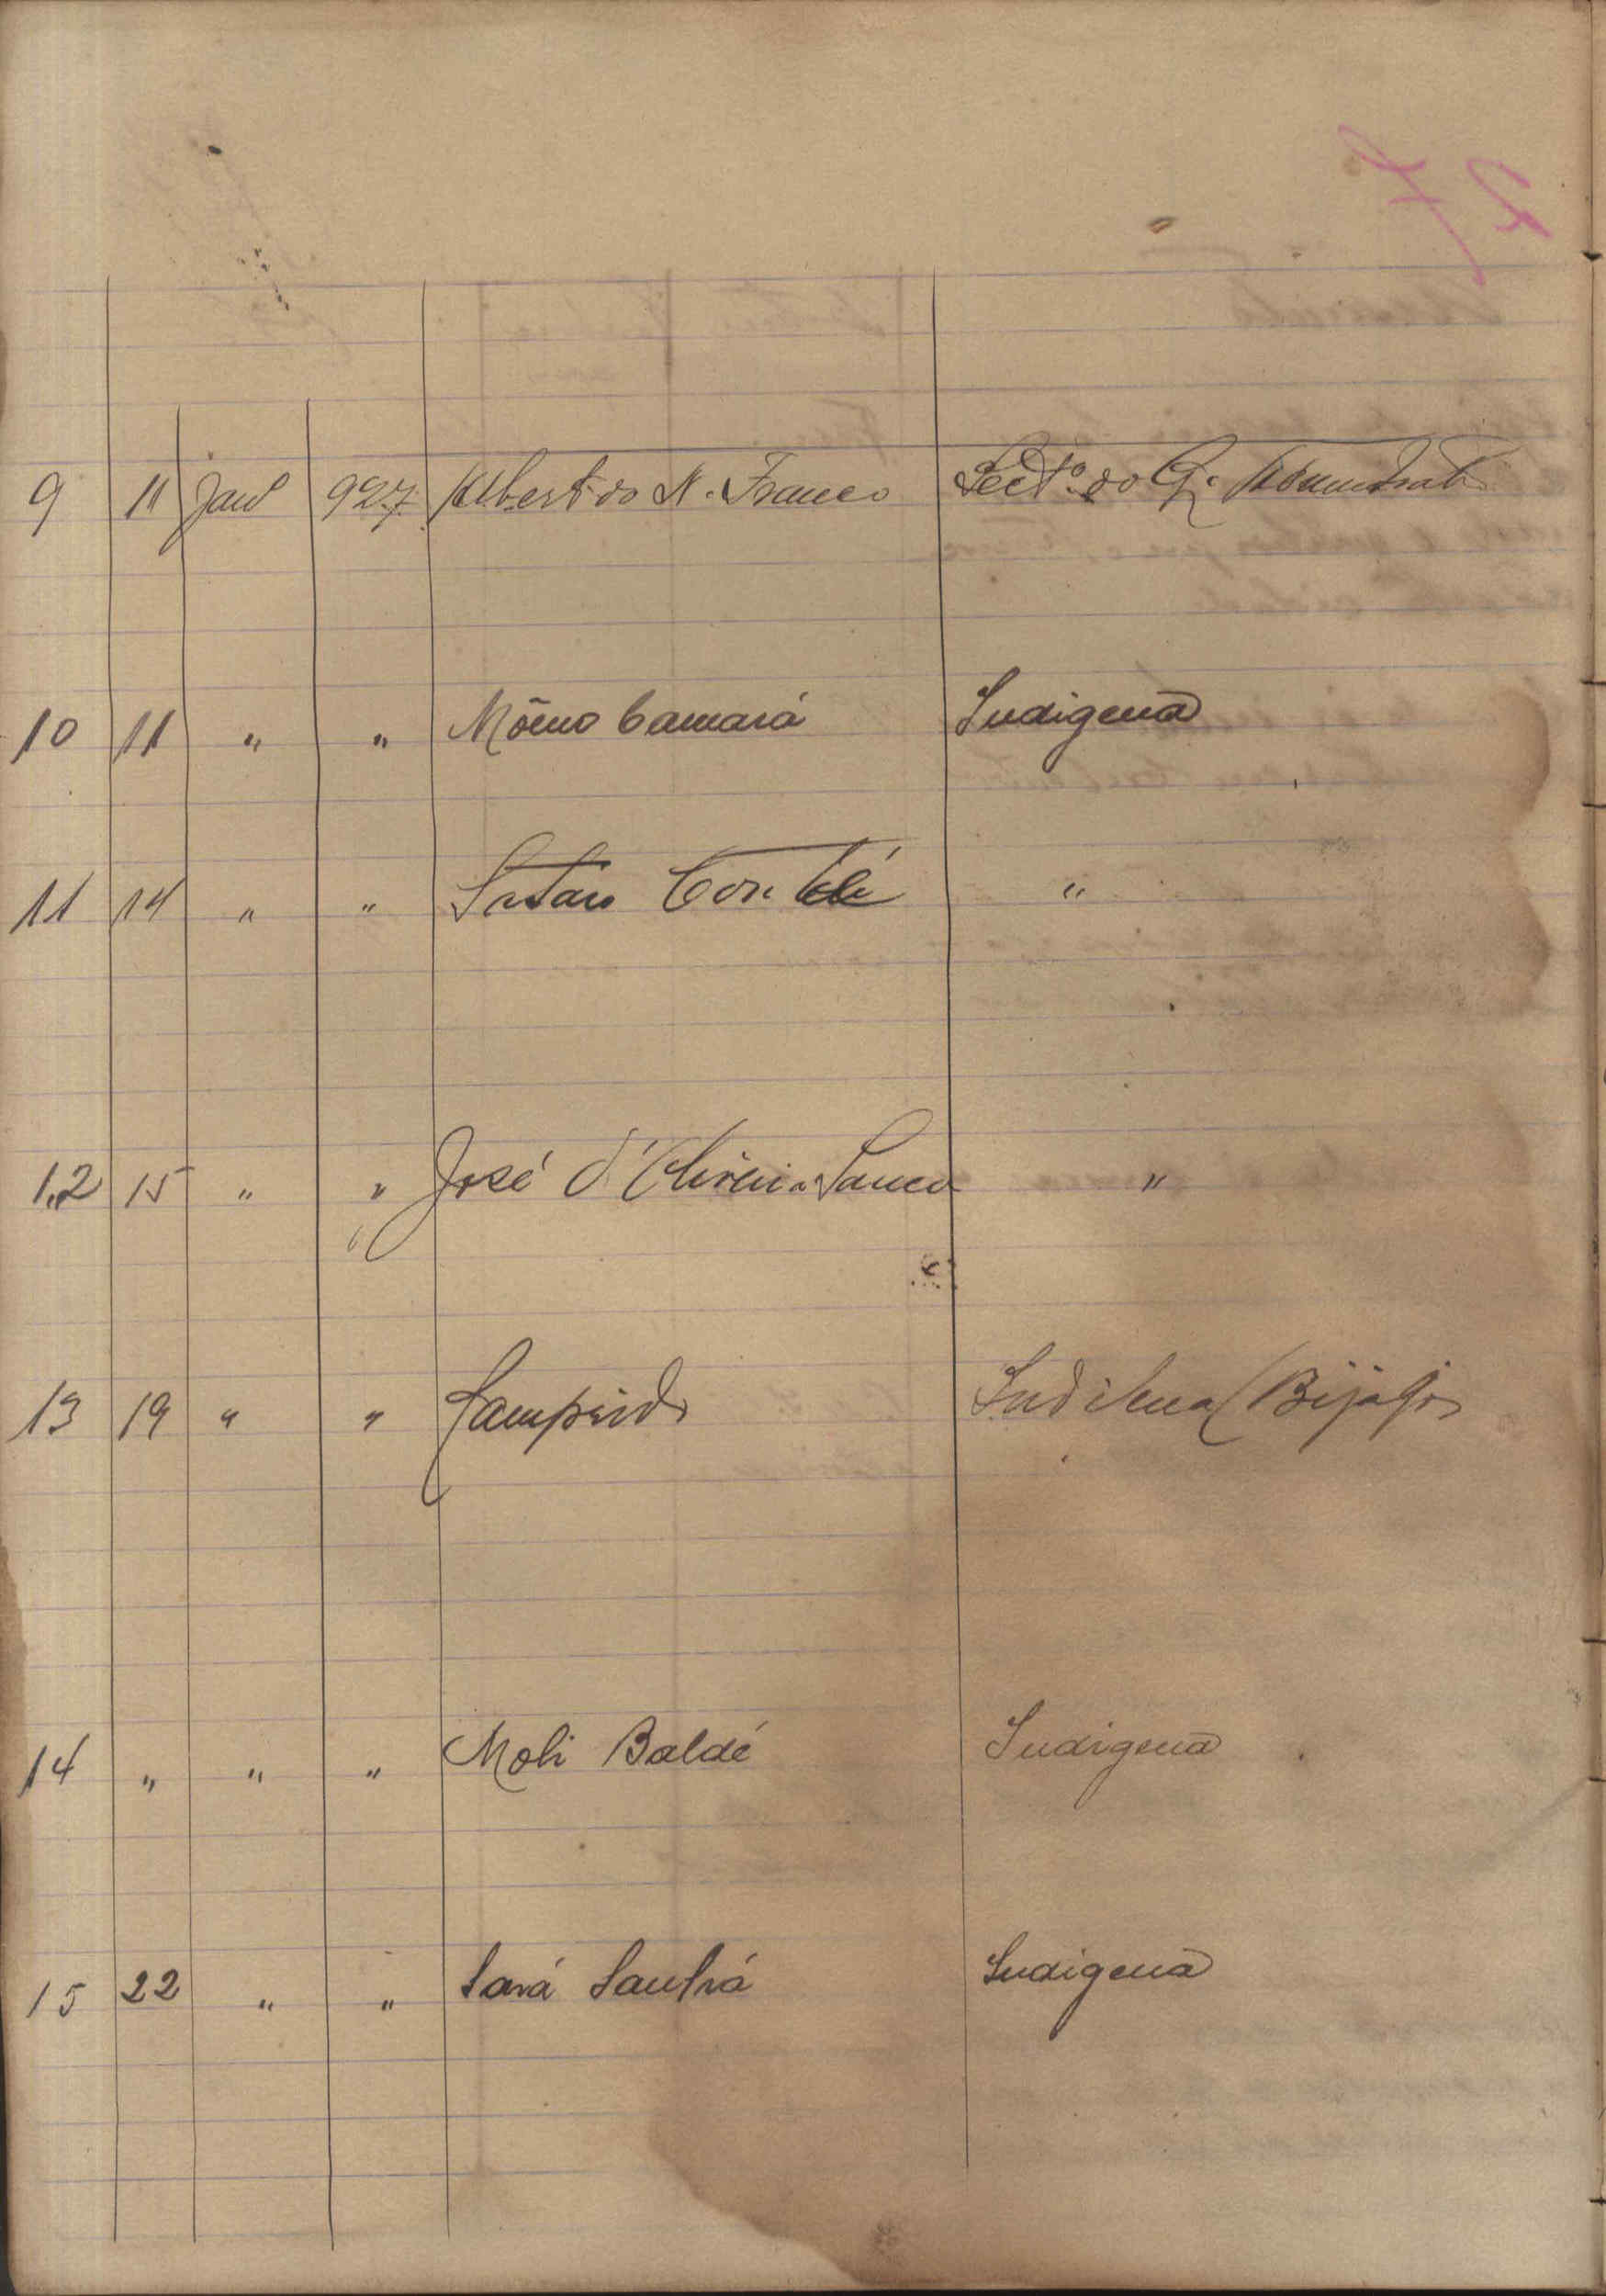 9 11 Janº 927 Alberto do N. Franco Sectº do
10 11 " " Mômo Camará Indigena
11 14 " " "
12 15 " " José d'Oliveira Sanca "
13 19 " " Indilena (Bijagos
14 " " " Moli Baldé Indigena
15 22 " " Saná Sanhá Indigena